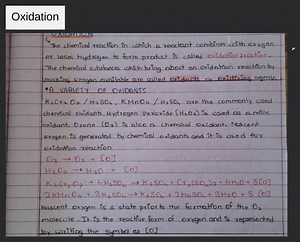 Oxidation
OXIDATION
The chemical reaction in which a reactant combines with oxygen
or loses hydrogen to form product is called oxidation reaction.
The chemical substances which bring about an oxidation reaction by
making oxygen available are called oxidants or oxidising agents.
• A VARIETY OF OXIDANTS
K₂Cr₂O₇ / H₂SO₄, KMnO₄ / H₂SO₄ are the commonly used
chemical oxidants. Hydrogen Peroxide (H₂O₂) is used as a mild
oxidant. Ozone (O₃) is also a chemical oxidant. Nascent
oxygen is generated by chemical oxidants and it is used for
oxidation reaction.
O₃ → O₂ + [O]
H₂O₂ → H₂O + [O]
K₂Cr₂O₇ + 4H₂SO₄ → K₂SO₄ + Cr₂(SO₄)₃ + 4H₂O + 3[O]
2KMnO₄ + 3H₂SO₄ → K₂SO₄ + 2MnSO₄ + 3H₂O + 5[O]
Nascent oxygen is a state prior to the formation of the O₂
molecule. It is the reactive form of oxygen and is represented
by writing the symbol as [O]